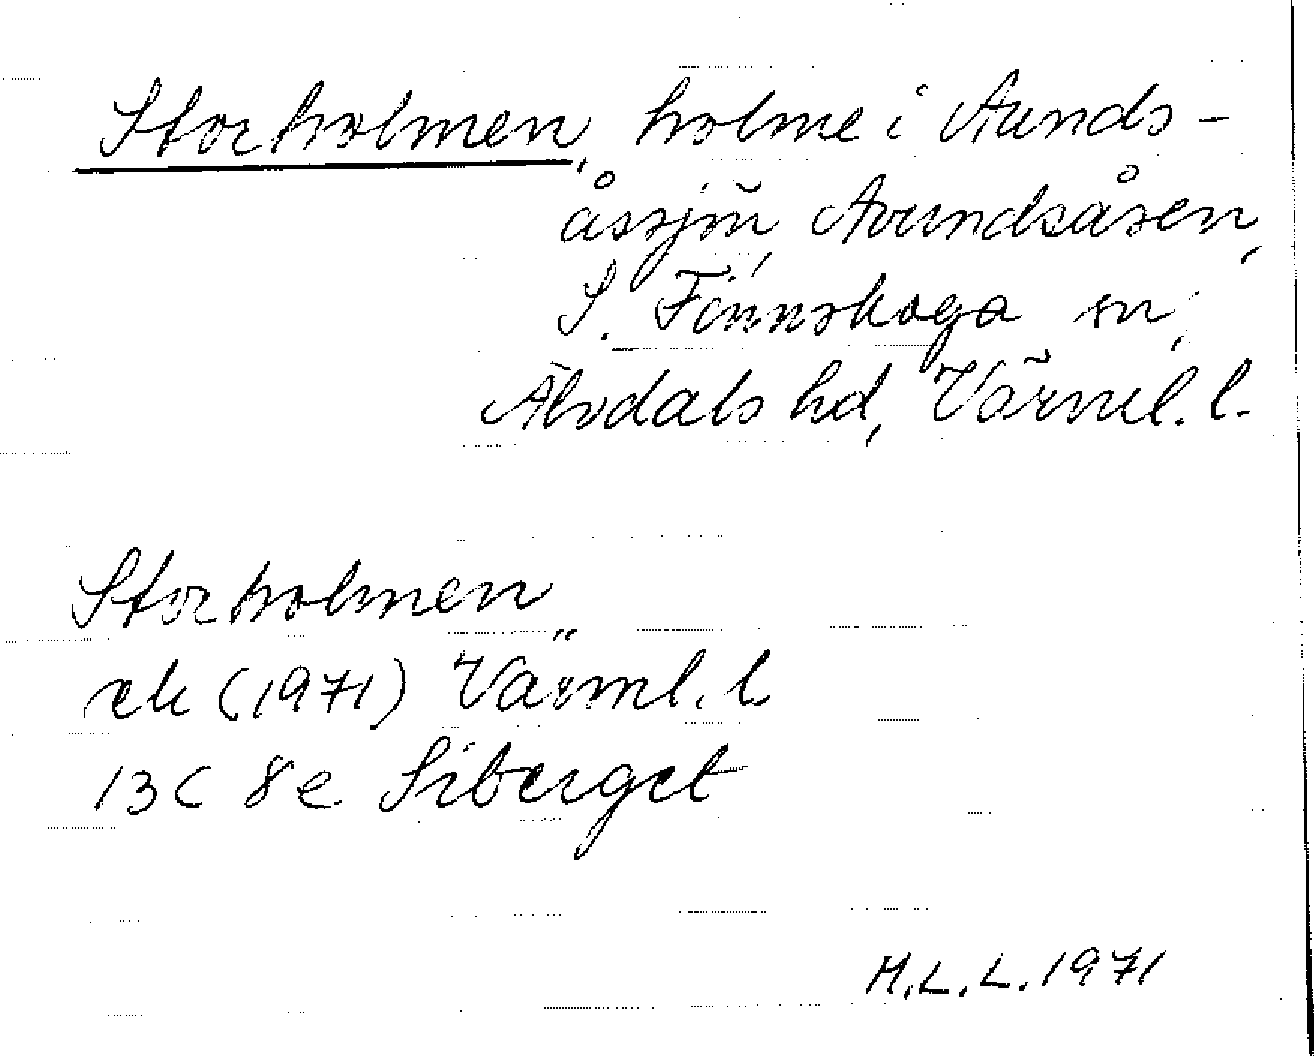 Storholmen, holme i Aunds-
åssjön, Avundsåsen,
S. Finnskoga sn,
Älvdals hd, Värml. l.
Storholmen
ek (1971) Värml. l.
13C 8e Siberget
M.L.L. 1971